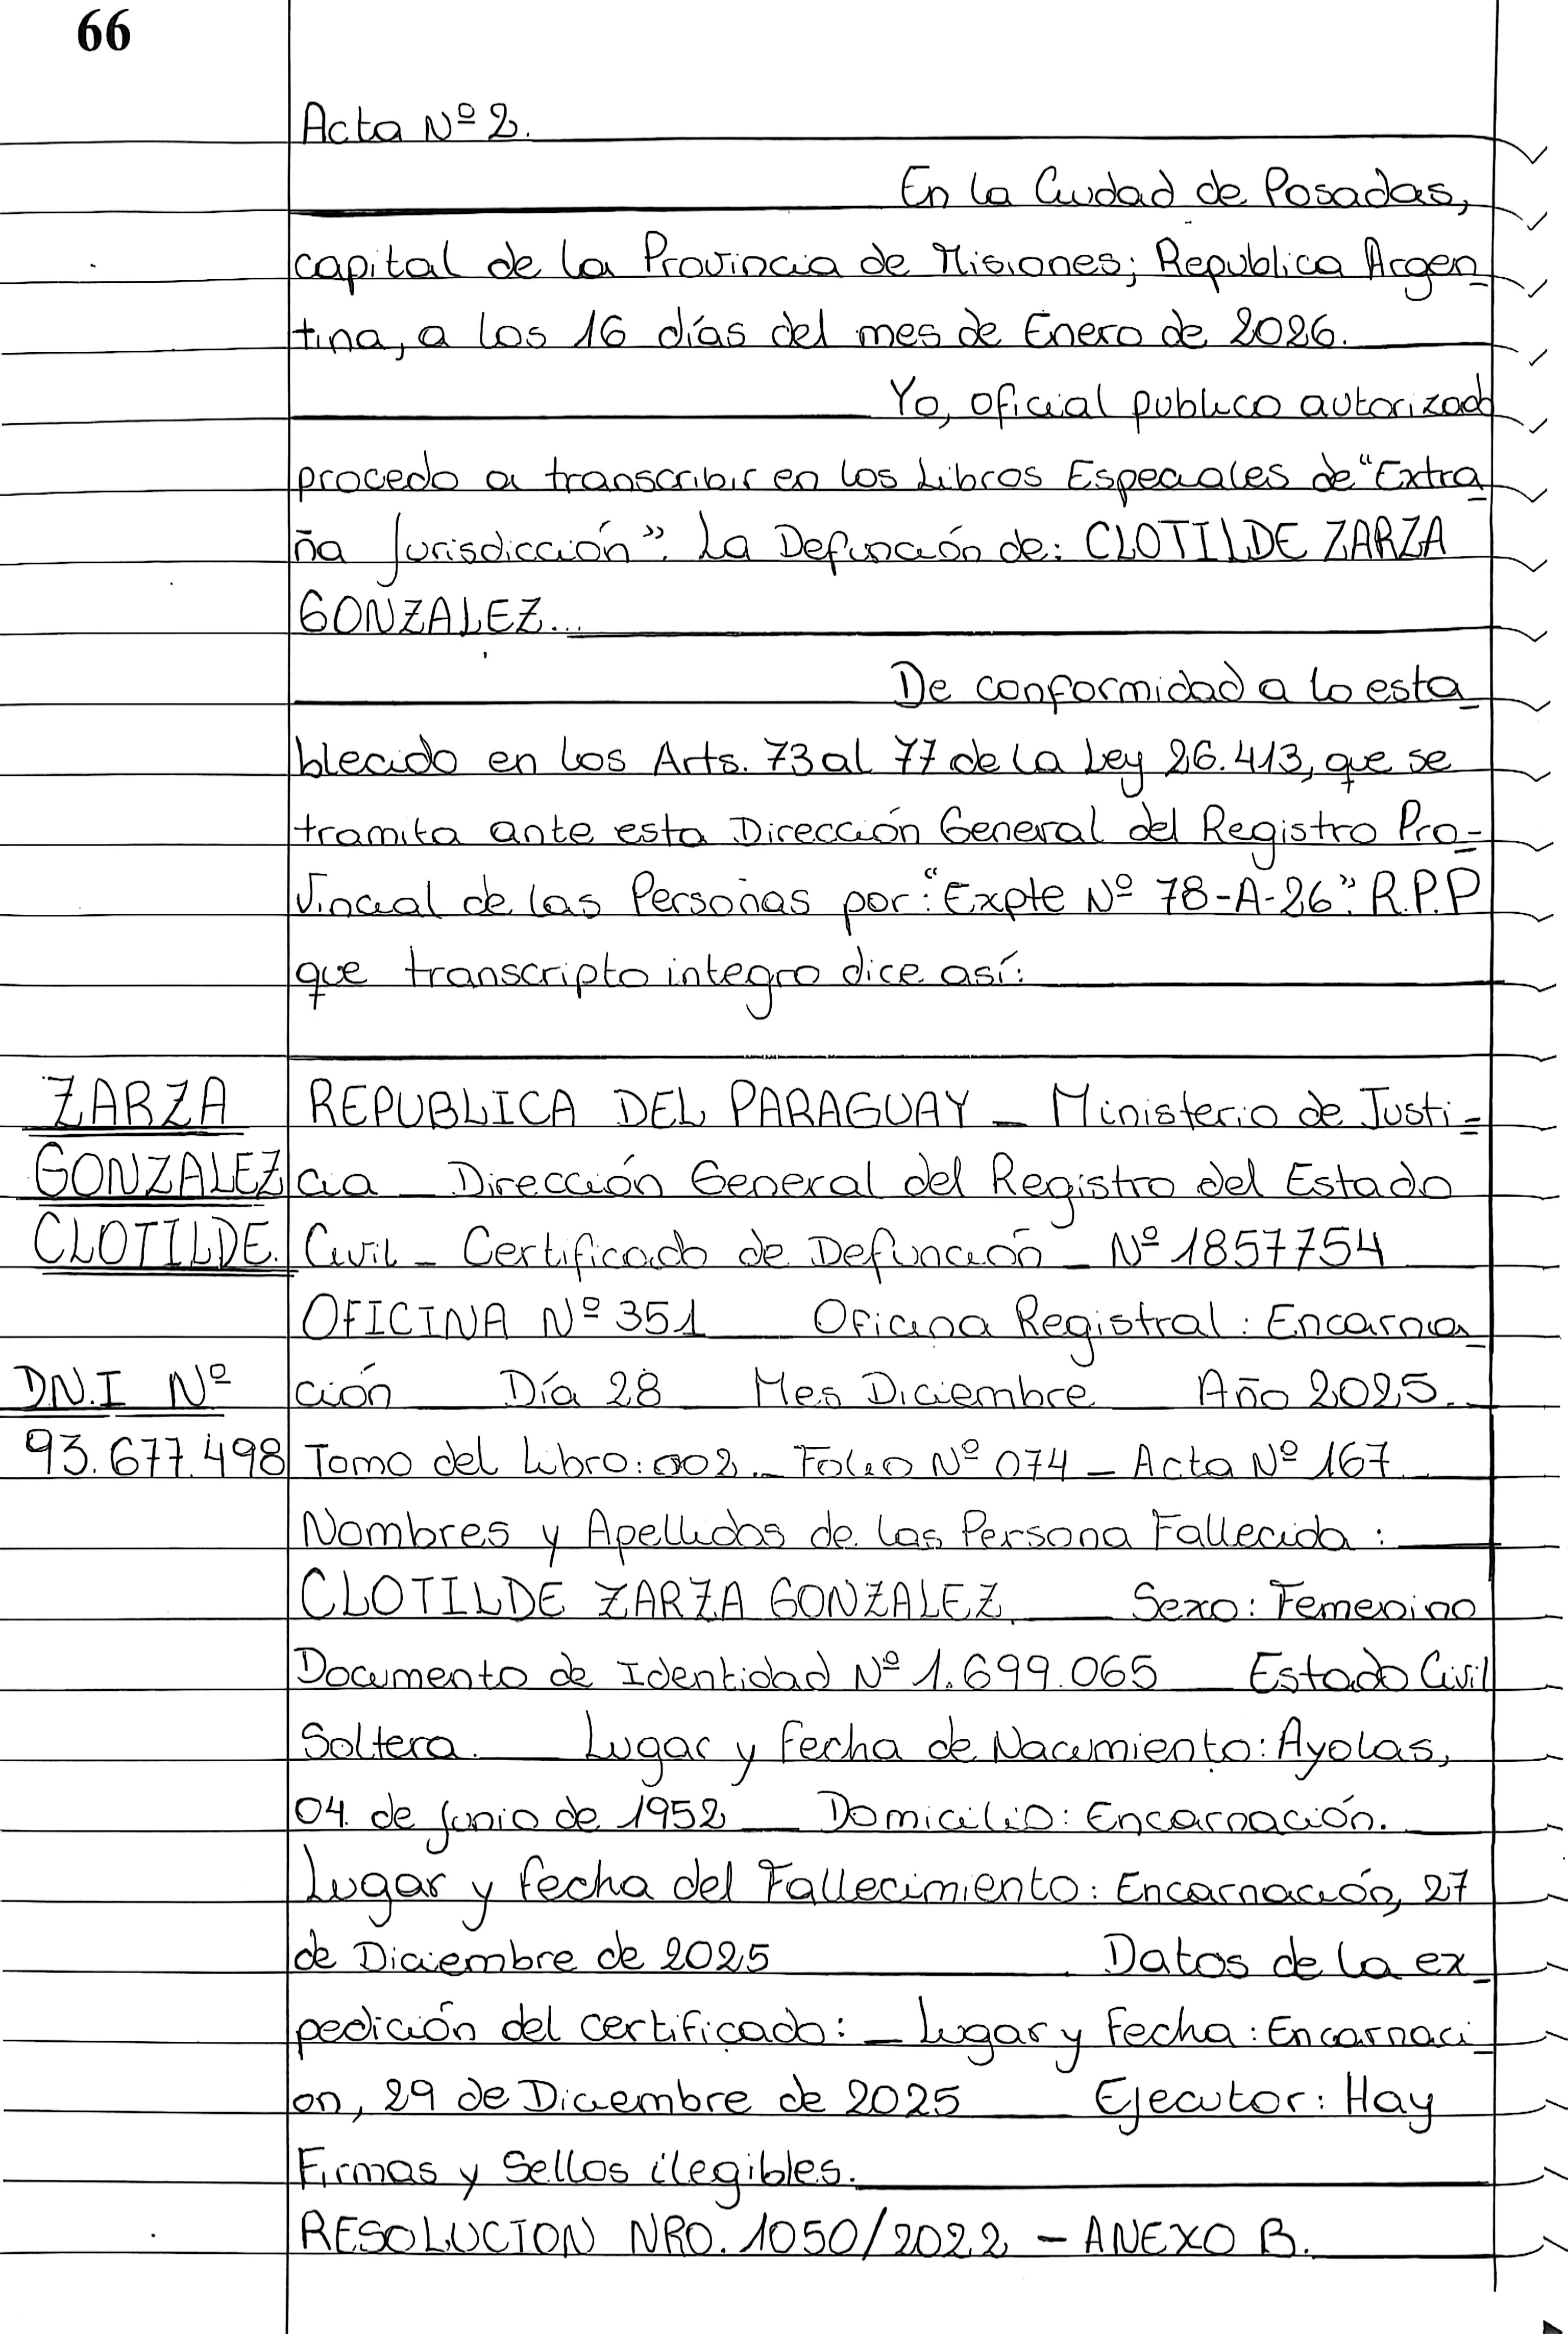 66
Acta Nº 2.
En la Ciudad de Posadas,
capital de la Provincia de Misiones; Republica Argen
tina, a los 16 días del mes de Enero de 2026.
Yo, oficial publico autorizado
procedo a transcribir en los Libros Especiales de "Extra
ña Jurisdicción". La Defunción de: CLOTILDE ZARZA
GONZALEZ...
De conformidad a lo esta
blecido en los Arts. 73 al 77 de la Ley 26.413, que se
tramita ante esta Dirección General del Registro Pro-
vincial de las Personas por: "Expte Nº 78-A-26". R.P.P
que transcripto integro dice así:
ZARZA
GONZALEZ
CLOTILDE.
DN.I Nº
93.677.498
REPUBLICA DEL PARAGUAY _ Ministerio de Justi=
cia _ Dirección General del Registro del Estado
Civil _ Certificado de Defunción _ Nº 1857754
OFICINA Nº 351 Oficina Registral: Encarna
ción Día 28 Mes Diciembre Año 2025.
Tomo del Libro: 002 _ Folio Nº 074 _ Acta Nº 167
Nombres y Apellidos de las Persona Fallecida:
CLOTILDE ZARZA GONZALEZ Sexo: Femenino
Documento de Identidad Nº 1.699.065 Estado Civil
Soltera. Lugar y fecha de Nacimiento: Ayolas,
04 de junio de 1952 Domicilio: Encarnación.
Lugar y fecha del Fallecimiento: Encarnación, 27
de Diciembre de 2025 Datos de la ex
pedición del certificado: _ Lugar y Fecha: Encarnaci
on, 29 de Diciembre de 2025 Ejecutor: Hay
Firmas y Sellos ilegibles.
RESOLUCION NRO. 1050/2022 - ANEXO B.